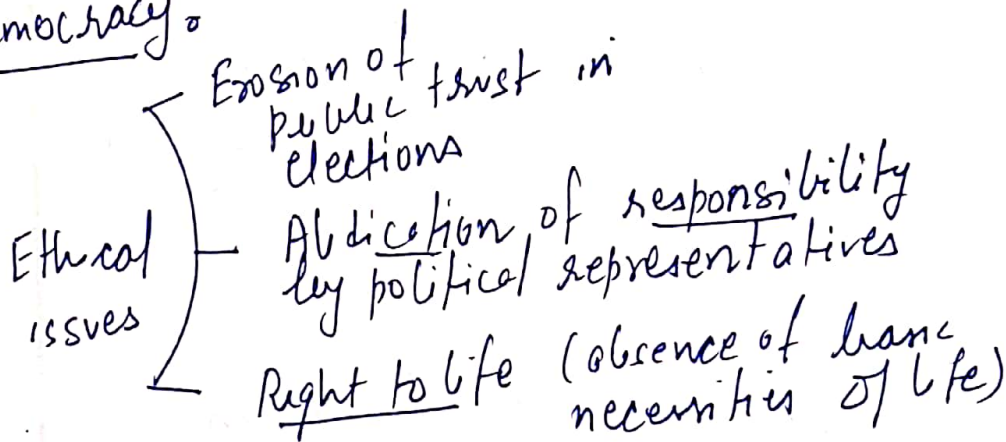 mocracy.
Erosion of
public trust in
elections
Ethical
issues
Abdication of responsibility
by political representatives
Right to life (absence of basic
necessities of life)